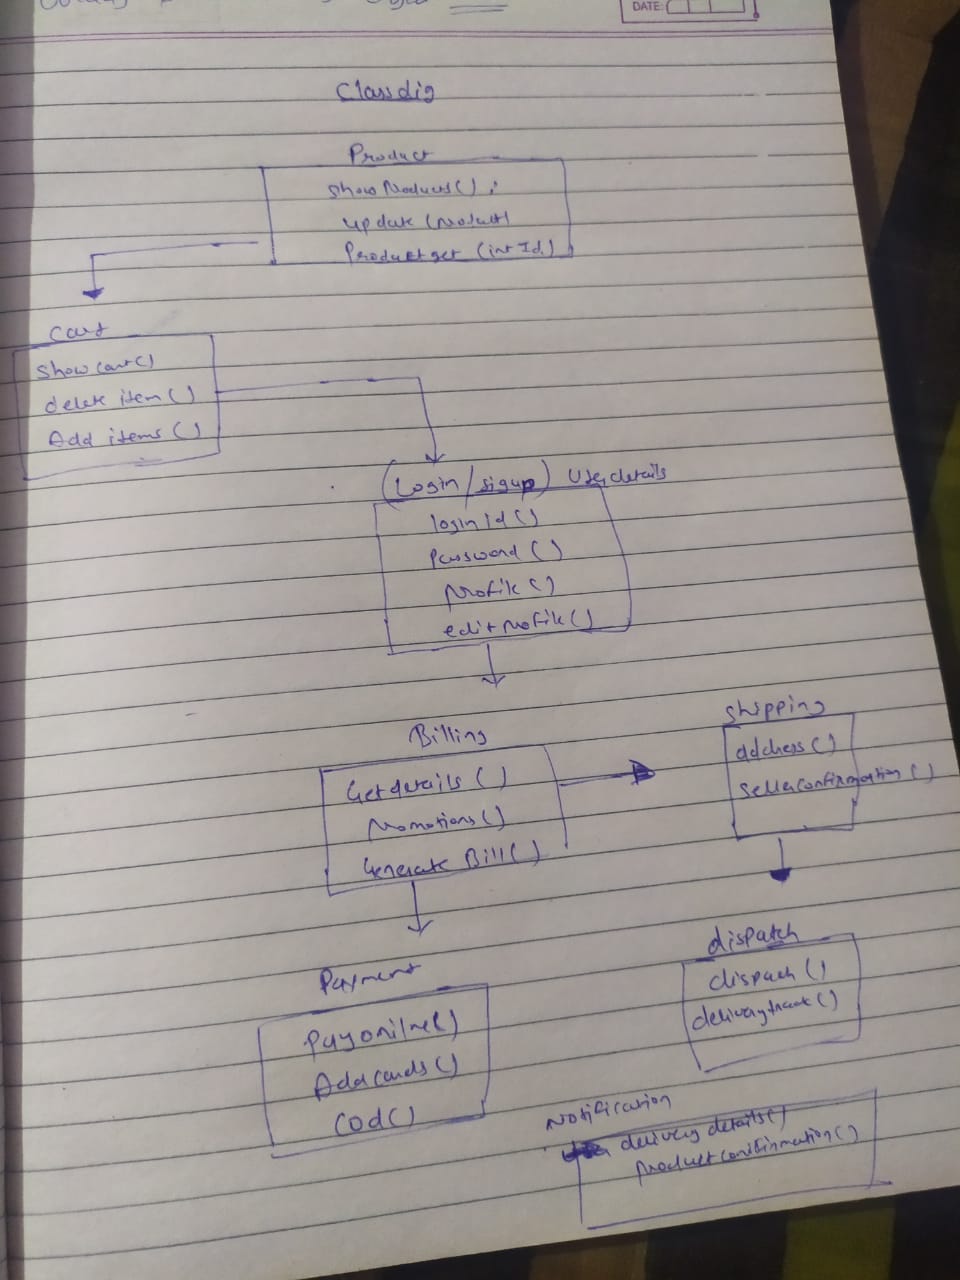 DATE:
Class dig
Product
show Products() ;
update (product)
Product get (int Id)
Cart
Show cart()
delete item()
Add items()
(Login/signup) User details
login Id()
Password()
profile()
edit profile()
Billing
Get details()
Promotions()
Generate Bill()
Shipping
address()
Seller confirmation()
Payment
Pay online()
Add cards()
COD()
dispatch
dispatch()
delivery track()
Notification
delivery details()
product confirmation()